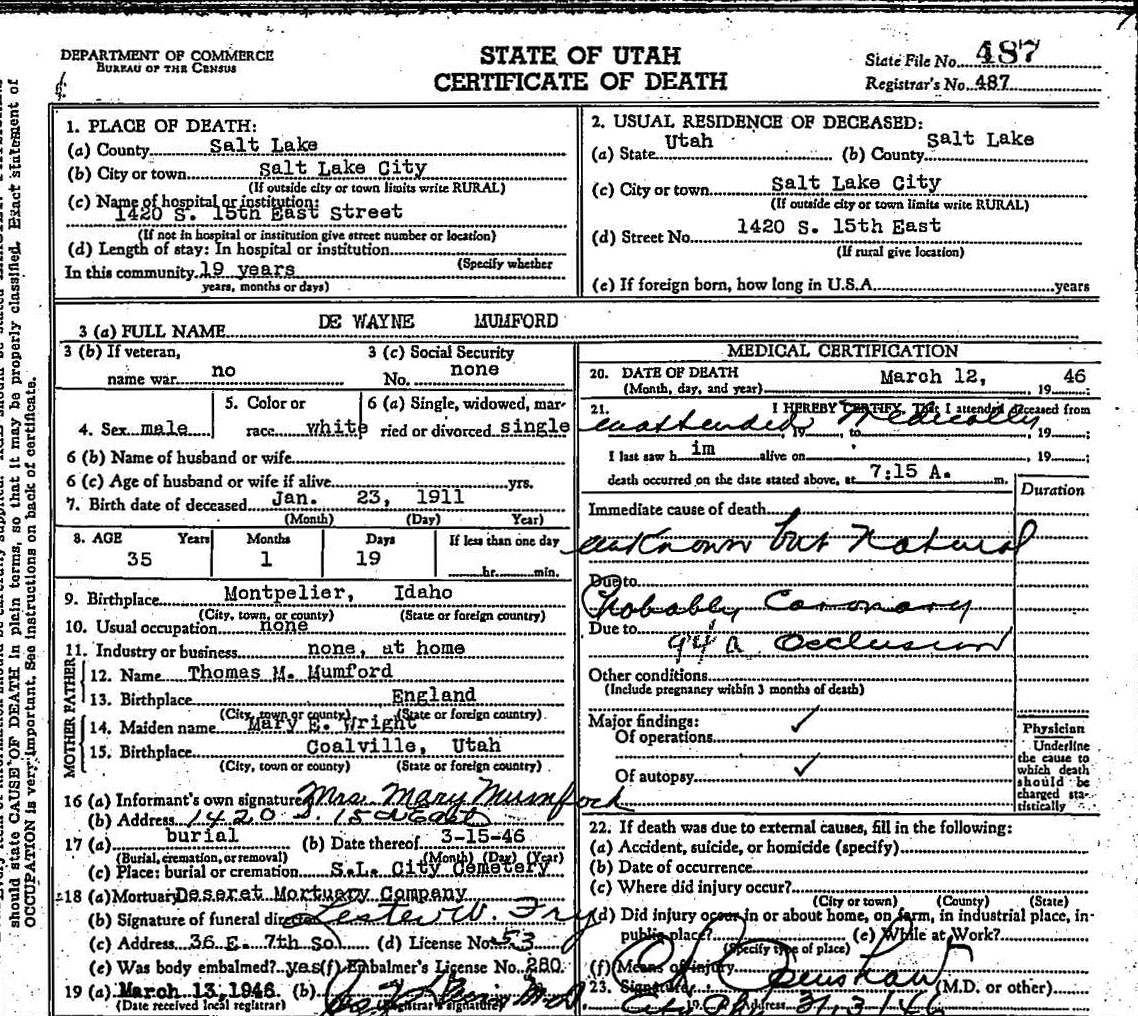 DEPARTMENT OF COMMERCE
BUREAU OF THE CENSUS
STATE OF UTAH
CERTIFICATE OF DEATH
State File No. 487
Registrar's No. 487
1. PLACE OF DEATH:
(a) County Salt Lake
(b) City or town Salt Lake City
(If outside city or town limits write RURAL)
(c) Name of hospital or institution:
1420 S. 15th East Street
(If not in hospital or institution give street number or location)
(d) Length of stay: In hospital or institution
(Specify whether
In this community 19 years
years, months or days)
2. USUAL RESIDENCE OF DECEASED:
(a) State Utah (b) County Salt Lake
(c) City or town Salt Lake City
(If outside city or town limits write RURAL)
(d) Street No. 1420 S. 15th East
(If rural give location)
(e) If foreign born, how long in U.S.A. years
3 (a) FULL NAME DE WAYNE MUMFORD
3 (b) If veteran, name war no
3 (c) Social Security No. none
4. Sex male
5. Color or race white
6 (a) Single, widowed, married or divorced single
6 (b) Name of husband or wife
6 (c) Age of husband or wife if alive yrs.
7. Birth date of deceased Jan. 23, 1911
(Month) (Day) Year)
8. AGE Years Months Days If less than one day
35 1 19 hr. min.
9. Birthplace Montpelier, Idaho
(City, town, or county) (State or foreign country)
10. Usual occupation none
11. Industry or business none, at home
FATHER
12. Name Thomas M. Mumford
13. Birthplace England
(City, town or county) (State or foreign country)
MOTHER
14. Maiden name Mary E. Wright
15. Birthplace Coalville, Utah
(City, town or county) (State or foreign country)
16 (a) Informant's own signature Mrs. Mary Mumford
(b) Address 1420 S. 15th East
17 (a) burial (b) Date thereof 3-15-46
(Burial, cremation, or removal) (Month) (Day) (Year)
(c) Place: burial or cremation S.L. City Cemetery
18 (a) Mortuary Deseret Mortuary Company
(b) Signature of funeral director Lester W. Fry
(c) Address 36 E. 7th So (d) License No. 53
(e) Was body embalmed? yes (f) Embalmer's License No. 280
19 (a) March 13, 1946 (b)
(Date received local registrar) Registrar's signature)
MEDICAL CERTIFICATION
20. DATE OF DEATH March 12, 19 46
(Month, day, and year)
21. I HEREBY CERTIFY, That I attended deceased from
unattended Medically 19 , to , 19 ;
I last saw h im alive on , 19 ;
death occurred on the date stated above, at 7:15 A. m.
Duration
Immediate cause of death
unknown but Natural
Due to
Probably Coronary
Due to
94a Occlusion
Other conditions
(Include pregnancy within 3 months of death)
Major findings:
Of operations ✓
Of autopsy ✓
Physician
Underline
the cause to
which death
should be
charged sta-
tistically
22. If death was due to external causes, fill in the following:
(a) Accident, suicide, or homicide (specify)
(b) Date of occurrence
(c) Where did injury occur?
(City or town) (County) (State)
(d) Did injury occur in or about home, on farm, in industrial place, in-
public place? (e) While at Work?
(Specify type of place)
(f) Means of injury
23. Signature (M.D. or other)
Address
should state CAUSE OF DEATH in plain terms, so that it may be properly classified. Exact statement of
OCCUPATION is very important. See instructions on back of certificate.